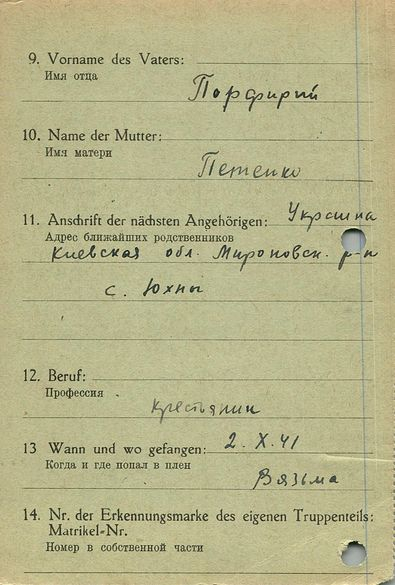 9. Vorname des Vaters:
Имя отца
Порфирий
10. Name der Mutter:
Имя матери
Петенко
11. Anschrift der nächsten Angehörigen: Украина
Адрес ближайших родственников
Киевская обл. Мироновск. р-н
с. Юхны
12. Beruf:
Профессия
крестьянин
13 Wann und wo gefangen: 2. X. 41
Когда и где попал в плен
Вязьма
14. Nr. der Erkennungsmarke des eigenen Truppenteils:
Matrikel-Nr.
Номер в собственной части